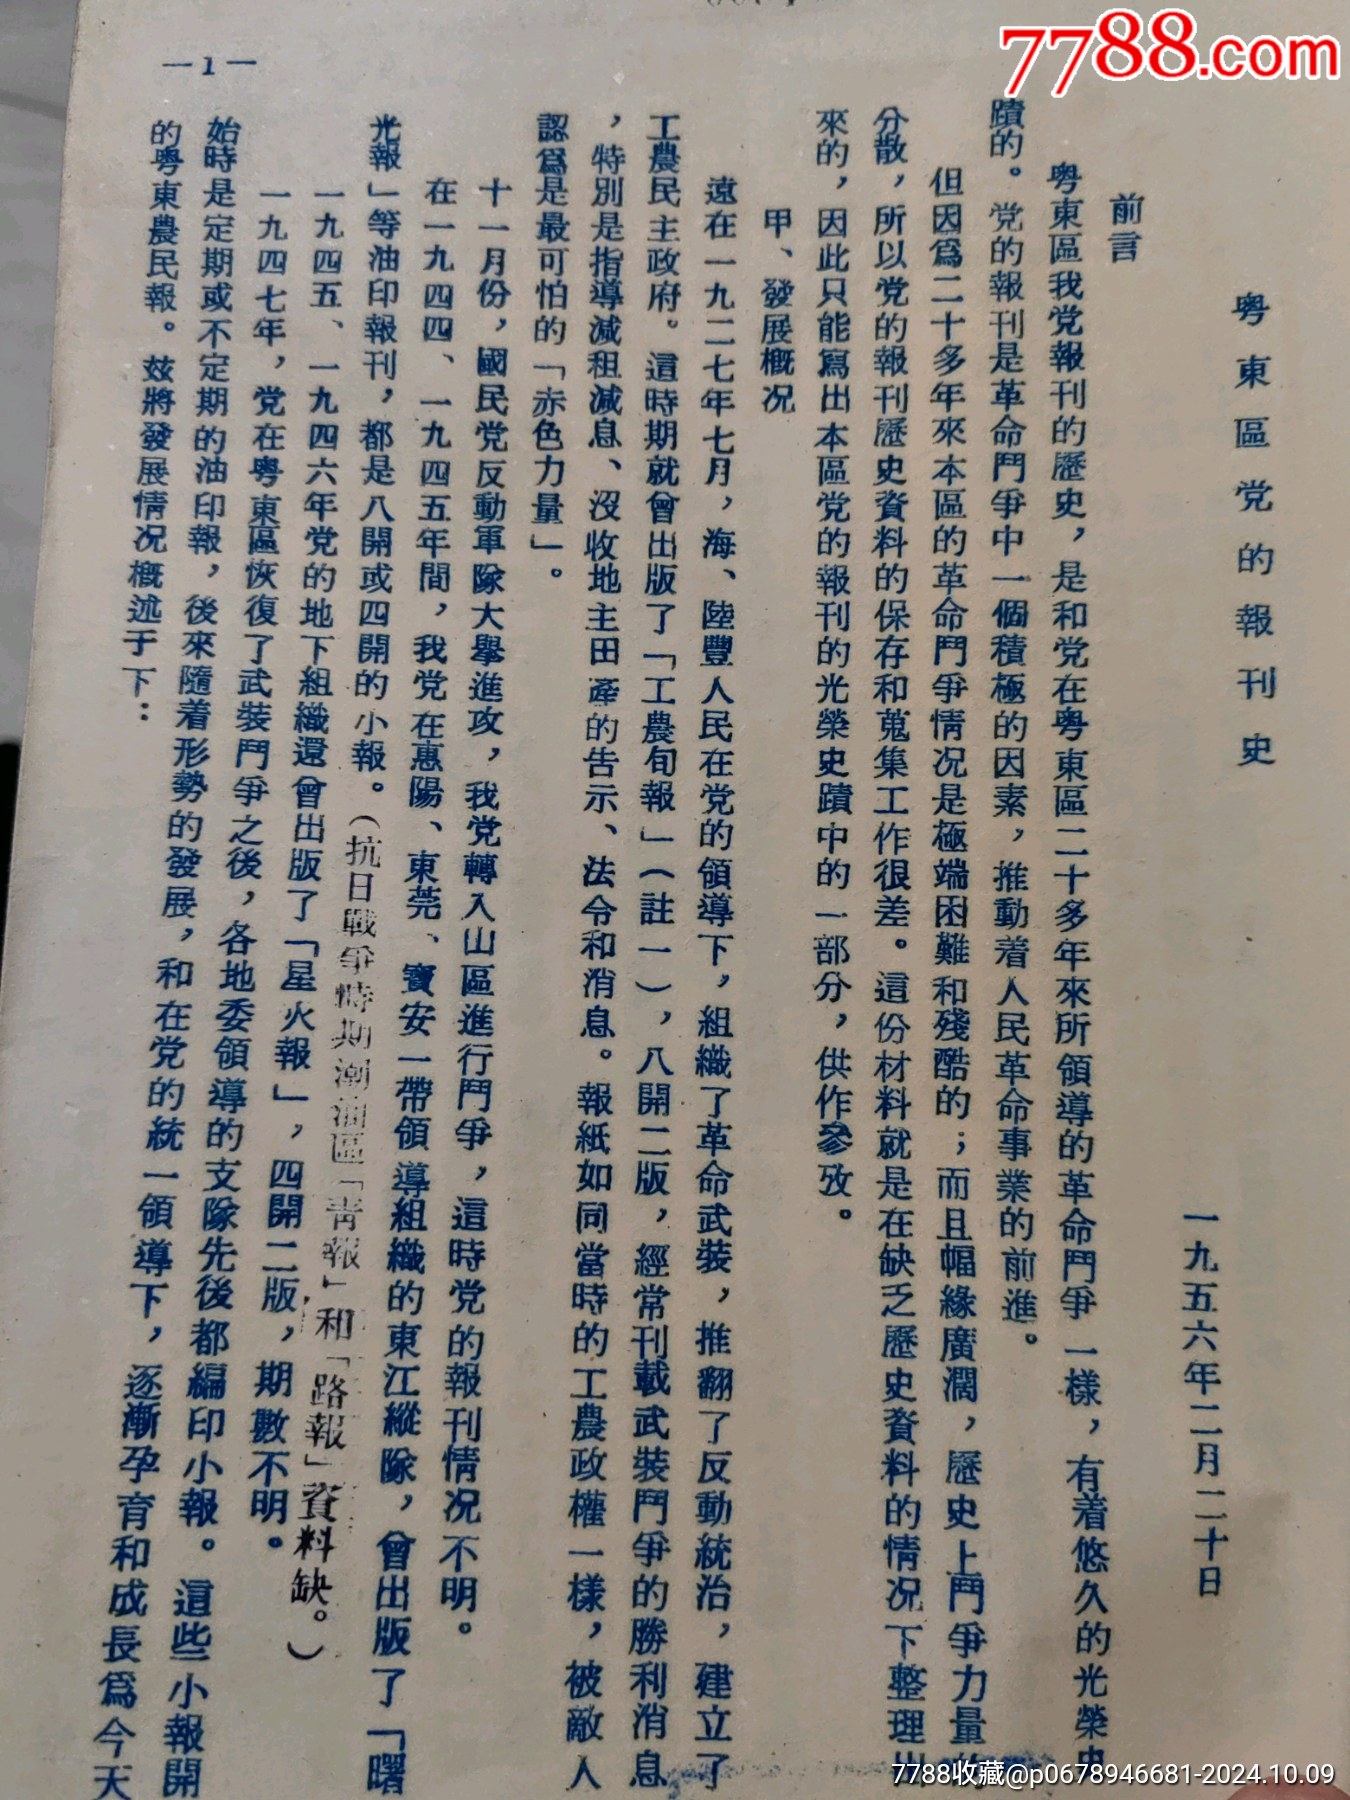 7788.com
粤東區党的報刊史
一九五六年二月二十日
前言
粤東區我党報刊的歷史，是和党在粤東區二十多年來所領導的革命鬥爭一樣，有着悠久的光榮史
蹟的。党的報刊是革命鬥爭中一個積極的因素，推動着人民革命事業的前進。
但因爲二十多年來本區的革命鬥爭情况是極端困難和殘酷的；而且幅緣廣濶，歷史上鬥爭力量的
分散，所以党的報刊歷史資料的保存和蒐集工作很差。這份材料就是在缺乏歷史資料的情况下整理出
來的，因此只能寫出本區党的報刊的光榮史蹟中的一部分，供作參攷。
甲、發展概况
遠在一九二七年七月，海、陸豐人民在党的領導下，組織了革命武裝，推翻了反動統治，建立了
工農民主政府。這時期就曾出版了「工農旬報」（註一），八開二版，經常刊載武裝鬥爭的勝利消息
，特別是指導減租減息、沒收地主田產的告示、法令和消息。報紙如同當時的工農政權一樣，被敵人
認爲是最可怕的「赤色力量」。
十一月份，國民党反動軍隊大擧進攻，我党轉入山區進行鬥爭，這時党的報刊情况不明。
在一九四四、一九四五年間，我党在惠陽、東莞、寶安一帶領導組織的東江縱隊，曾出版了「曙
光報」等油印報刊，都是八開或四開的小報。（抗日戰爭時期潮汕區「青報」和「路報」資料缺。）
一九四五、一九四六年党的地下組織還曾出版了「星火報」，四開二版，期數不明。
一九四七年，党在粤東區恢復了武裝鬥爭之後，各地委領導的支隊先後都編印小報。這些小報開
始時是定期或不定期的油印報，後來隨着形勢的發展，和在党的統一領導下，逐漸孕育和成長爲今天
的粤東農民報。玆將發展情况概述于下：
—1—
7788收藏@p0678946681-2024.10.09